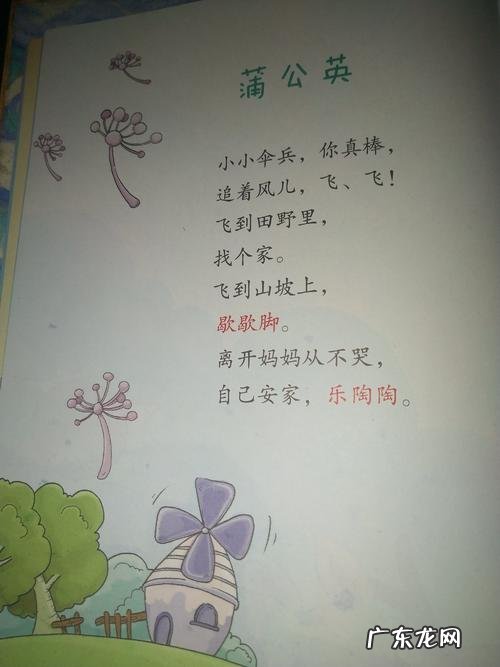 蒲公英
小小伞兵，你真棒，
追着风儿，飞、飞！
飞到田野里，
找个家。
飞到山坡上，
歇歇脚。
离开妈妈从不哭，
自己安家，乐陶陶。
广东龙网